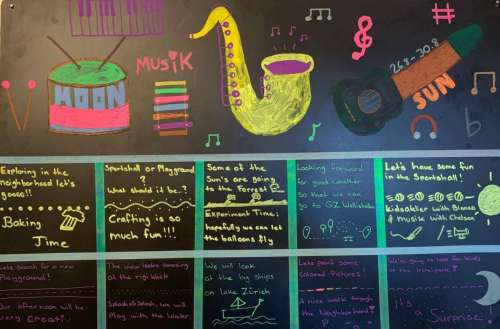 MUSIK
MOON
26.8 - 30.8
SUN
Exploring in the
neighborhood let's
goooo!!
Baking
Time
Sportshall or Playground
?
What should it be..?
Crafting is so
much fun!!!
Some of the
Sun's are going
to the Forrest
Experiment Time:
hopefully we can let
the balloons fly
Looking forward
for good weather
so that we can
go to GZ
Let's have some fun
in the Sportshall!
Kidsatelier with Bianca
& Musik with Chelsea
Lets search for a new
Playground!
Our afternoon will be
very Creativ
The view looks amazing
at the
Splash o Splash, we will
Play with the Water
We will look
at the big ships
on lake Zürich
Lets paint some
colored Pictures!
A nice walk trough
the Neighborhood!
We're going to have fun
at the
It's
a Surprise!